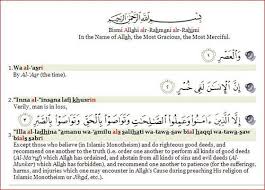 بِسْمِ اللَّهِ الرَّحْمَٰنِ الرَّحِيمِ
Bismi Allahi alr-Rahmani alr-Rahimi
In the Name of Allah, the Most Gracious, the Most Merciful.
وَالْعَصْرِ
1. Wa al-'asri
By Al-'Asr (the time).
إِنَّ الْإِنسَانَ لَفِي خُسْرٍ
2. "Inna al-'insana lafi khusrin
Verily, man is in loss,
إِلَّا الَّذِينَ آمَنُوا وَعَمِلُوا الصَّالِحَاتِ وَتَوَاصَوْا بِالْحَقِّ وَتَوَاصَوْا بِالصَّبْرِ
3. "Illa al-ladhina 'amanu wa'amilu als salihati wa-tawa-saw bial haqqi wa-tawa-saw bials sabri
Except those who believe (in Islamic Monotheism) and do righteous good deeds, and
recommend one another to the truth (i.e. order one another to perform all kinds of good deeds
(Al-Ma'ruf) which Allah has ordained, and abstain from all kinds of sins and evil deeds (Al-
Munkar) which Allah has forbidden), and recommend one another to patience (for the sufferings,
harms, and injuries which one may encounter in Allah's Cause during preaching His religion of
Islamic Monotheism or Jihad, etc.).